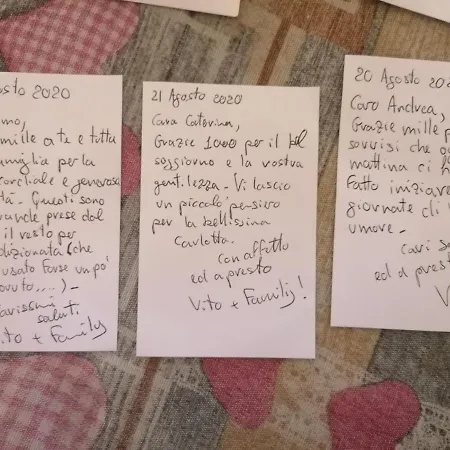 osto 2020
mo,
mille a te e tutta
amiglia per la
cordiale e generosa
tà. Questi sono
vande prese dal
il resto per
dizionata (che
usato forse un pò
ovuto....)-
arissimi
saluti
ito + Family
21 Agosto 2020
Cara Caterina,
Grazie 1000 per il bel
soggiorno e la vostra
gentilezza - Vi lascio
un piccolo pensiero
per la bellissima
Carlotta.
con affetto
ed a presto
Vito + Family!
20 Agosto 202
Caro Andrea,
Grazie mille p
sorrisi che og
mattina ci h
Fatto iniziare
giornate di
umore -
Cari s
ed a prest
V